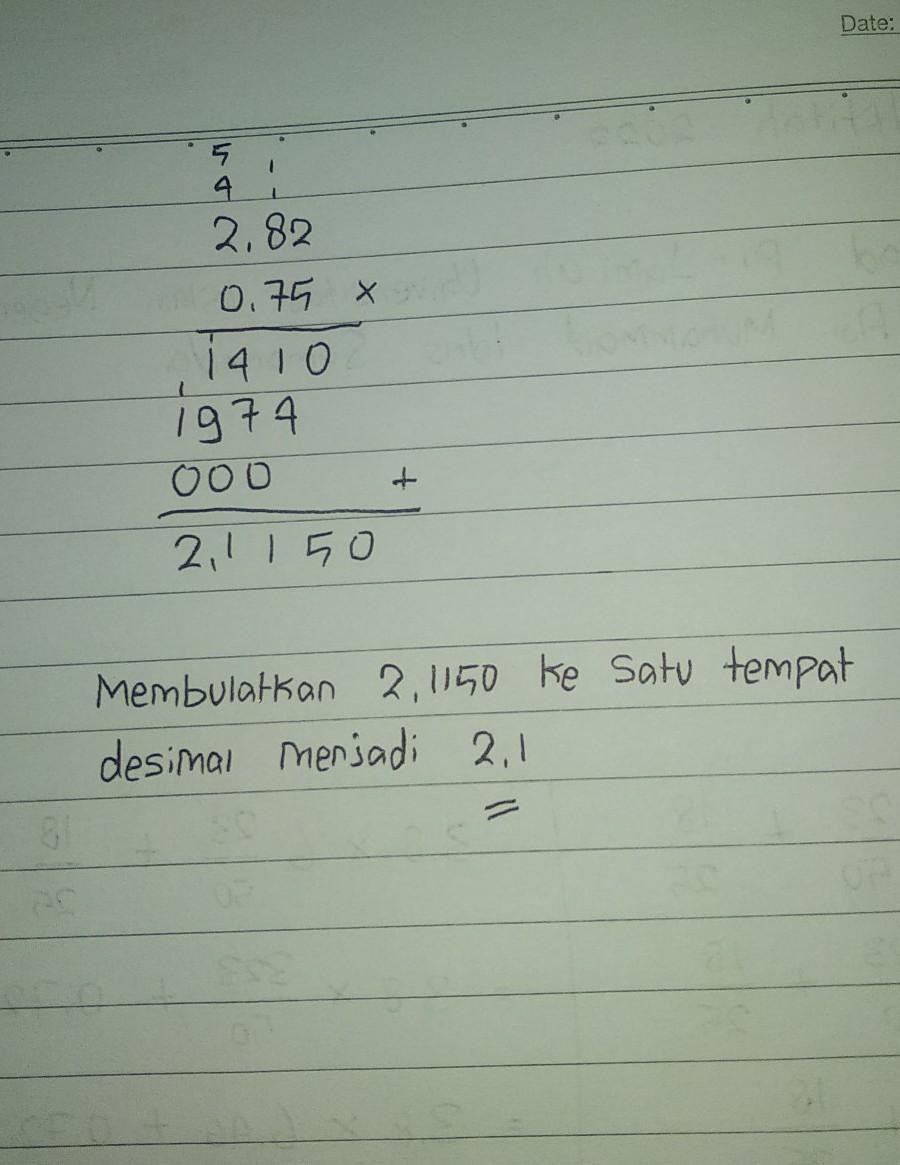 Date:
5 1
4 1
2.82
0.75 ×
1410
1
1974
000 +
2.1150
Membulatkan 2.1150 ke satu tempat
desimal menjadi 2.1
=